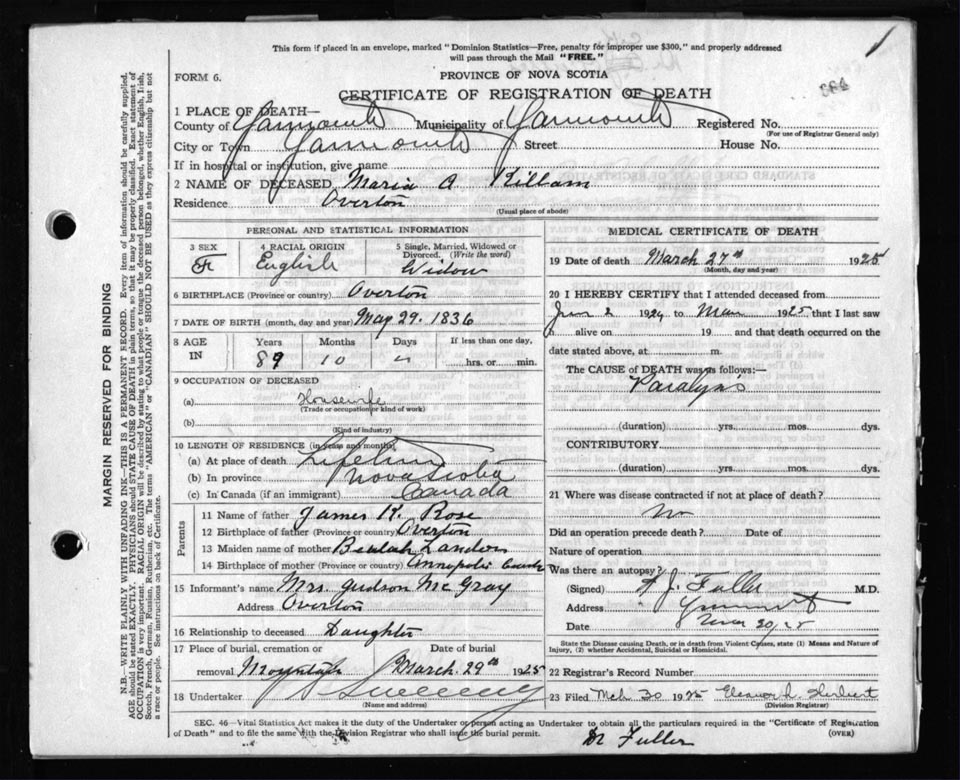 This form if placed in an envelope, marked "Dominion Statistics—Free, penalty for improper use $300," and properly addressed
will pass through the Mail "FREE."
FORM 6.
PROVINCE OF NOVA SCOTIA
364
CERTIFICATE OF REGISTRATION OF DEATH
1 PLACE OF DEATH—
County of Yarmouth Municipality of Yarmouth Registered No.
(For use of Registrar General only)
City or Town Yarmouth Street House No.
If in hospital or institution, give name
2 NAME OF DECEASED Maria A Killam
Residence Overton
(Usual place of abode)
PERSONAL AND STATISTICAL INFORMATION
3 SEX 4 RACIAL ORIGIN 5 Single, Married, Widowed or
Divorced. (Write the word)
F English Widow
6 BIRTHPLACE (Province or country) Overton
7 DATE OF BIRTH (month, day and year) May 29. 1836
8 AGE IN Years Months Days If less than one day,
89 10 hrs. or min.
9 OCCUPATION OF DECEASED
(a) Housewife
(Trade or occupation or kind of work)
(b)
(Kind of industry)
10 LENGTH OF RESIDENCE (in years and months)
(a) At place of death Lifetime
(b) In province Nova Scotia
(c) In Canada (if an immigrant) Canada
Parents
11 Name of father James K. Rose
12 Birthplace of father (Province or country) Overton
13 Maiden name of mother Beulah Landers
14 Birthplace of mother (Province or country) Annapolis
15 Informant's name Mrs. Judson McGray
Address Overton
16 Relationship to deceased Daughter
17 Place of burial, cremation or Date of burial
removal Mountain March 29th 1925
18 Undertaker Sweeney
(Name and address)
MEDICAL CERTIFICATE OF DEATH
19 Date of death March 27th 1925
(Month, day and year)
20 I HEREBY CERTIFY that I attended deceased from
June 2 1924 to Mar 1925 that I last saw
h alive on 19 and that death occurred on the
date stated above, at m.
The CAUSE of DEATH was as follows:—
Paralysis
(duration) yrs. mos. dys.
CONTRIBUTORY
(duration) yrs. mos. dys.
21 Where was disease contracted if not at place of death?
No
Did an operation precede death? Date of
Nature of operation
Was there an autopsy?
(Signed) A J. Fuller M.D.
Address Yarmouth
Date
State the Disease causing Death, or in death from Violent Causes, state (1) Means and Nature of
Injury, (2) whether Accidental, Suicidal or Homicidal.
22 Registrar's Record Number
23 Filed Mch 30 1925 Eleanor L. Herbert
(Division Registrar)
SEC. 46—Vital Statistics Act makes it the duty of the Undertaker or person acting as Undertaker to obtain all the particulars required in the "Certificate of Registration
of Death" and to file the same with the Division Registrar who shall issue the burial permit. (OVER)
Dr Fuller
MARGIN RESERVED FOR BINDING
N.B.—WRITE PLAINLY WITH UNFADING INK—THIS IS A PERMANENT RECORD. Every item of information should be carefully supplied.
AGE should be stated EXACTLY. PHYSICIANS should STATE CAUSE OF DEATH in plain terms, so that it may be properly classified. Exact statement of
OCCUPATION is very important. RACIAL ORIGIN will be described by stating to what people or tongue the deceased person belonged, whether English, Irish,
Scotch, French, German, Russian, Ruthenian, etc. The terms "AMERICAN" or "CANADIAN" SHOULD NOT BE USED as they express citizenship but not
a race or people. See instructions on back of Certificate.